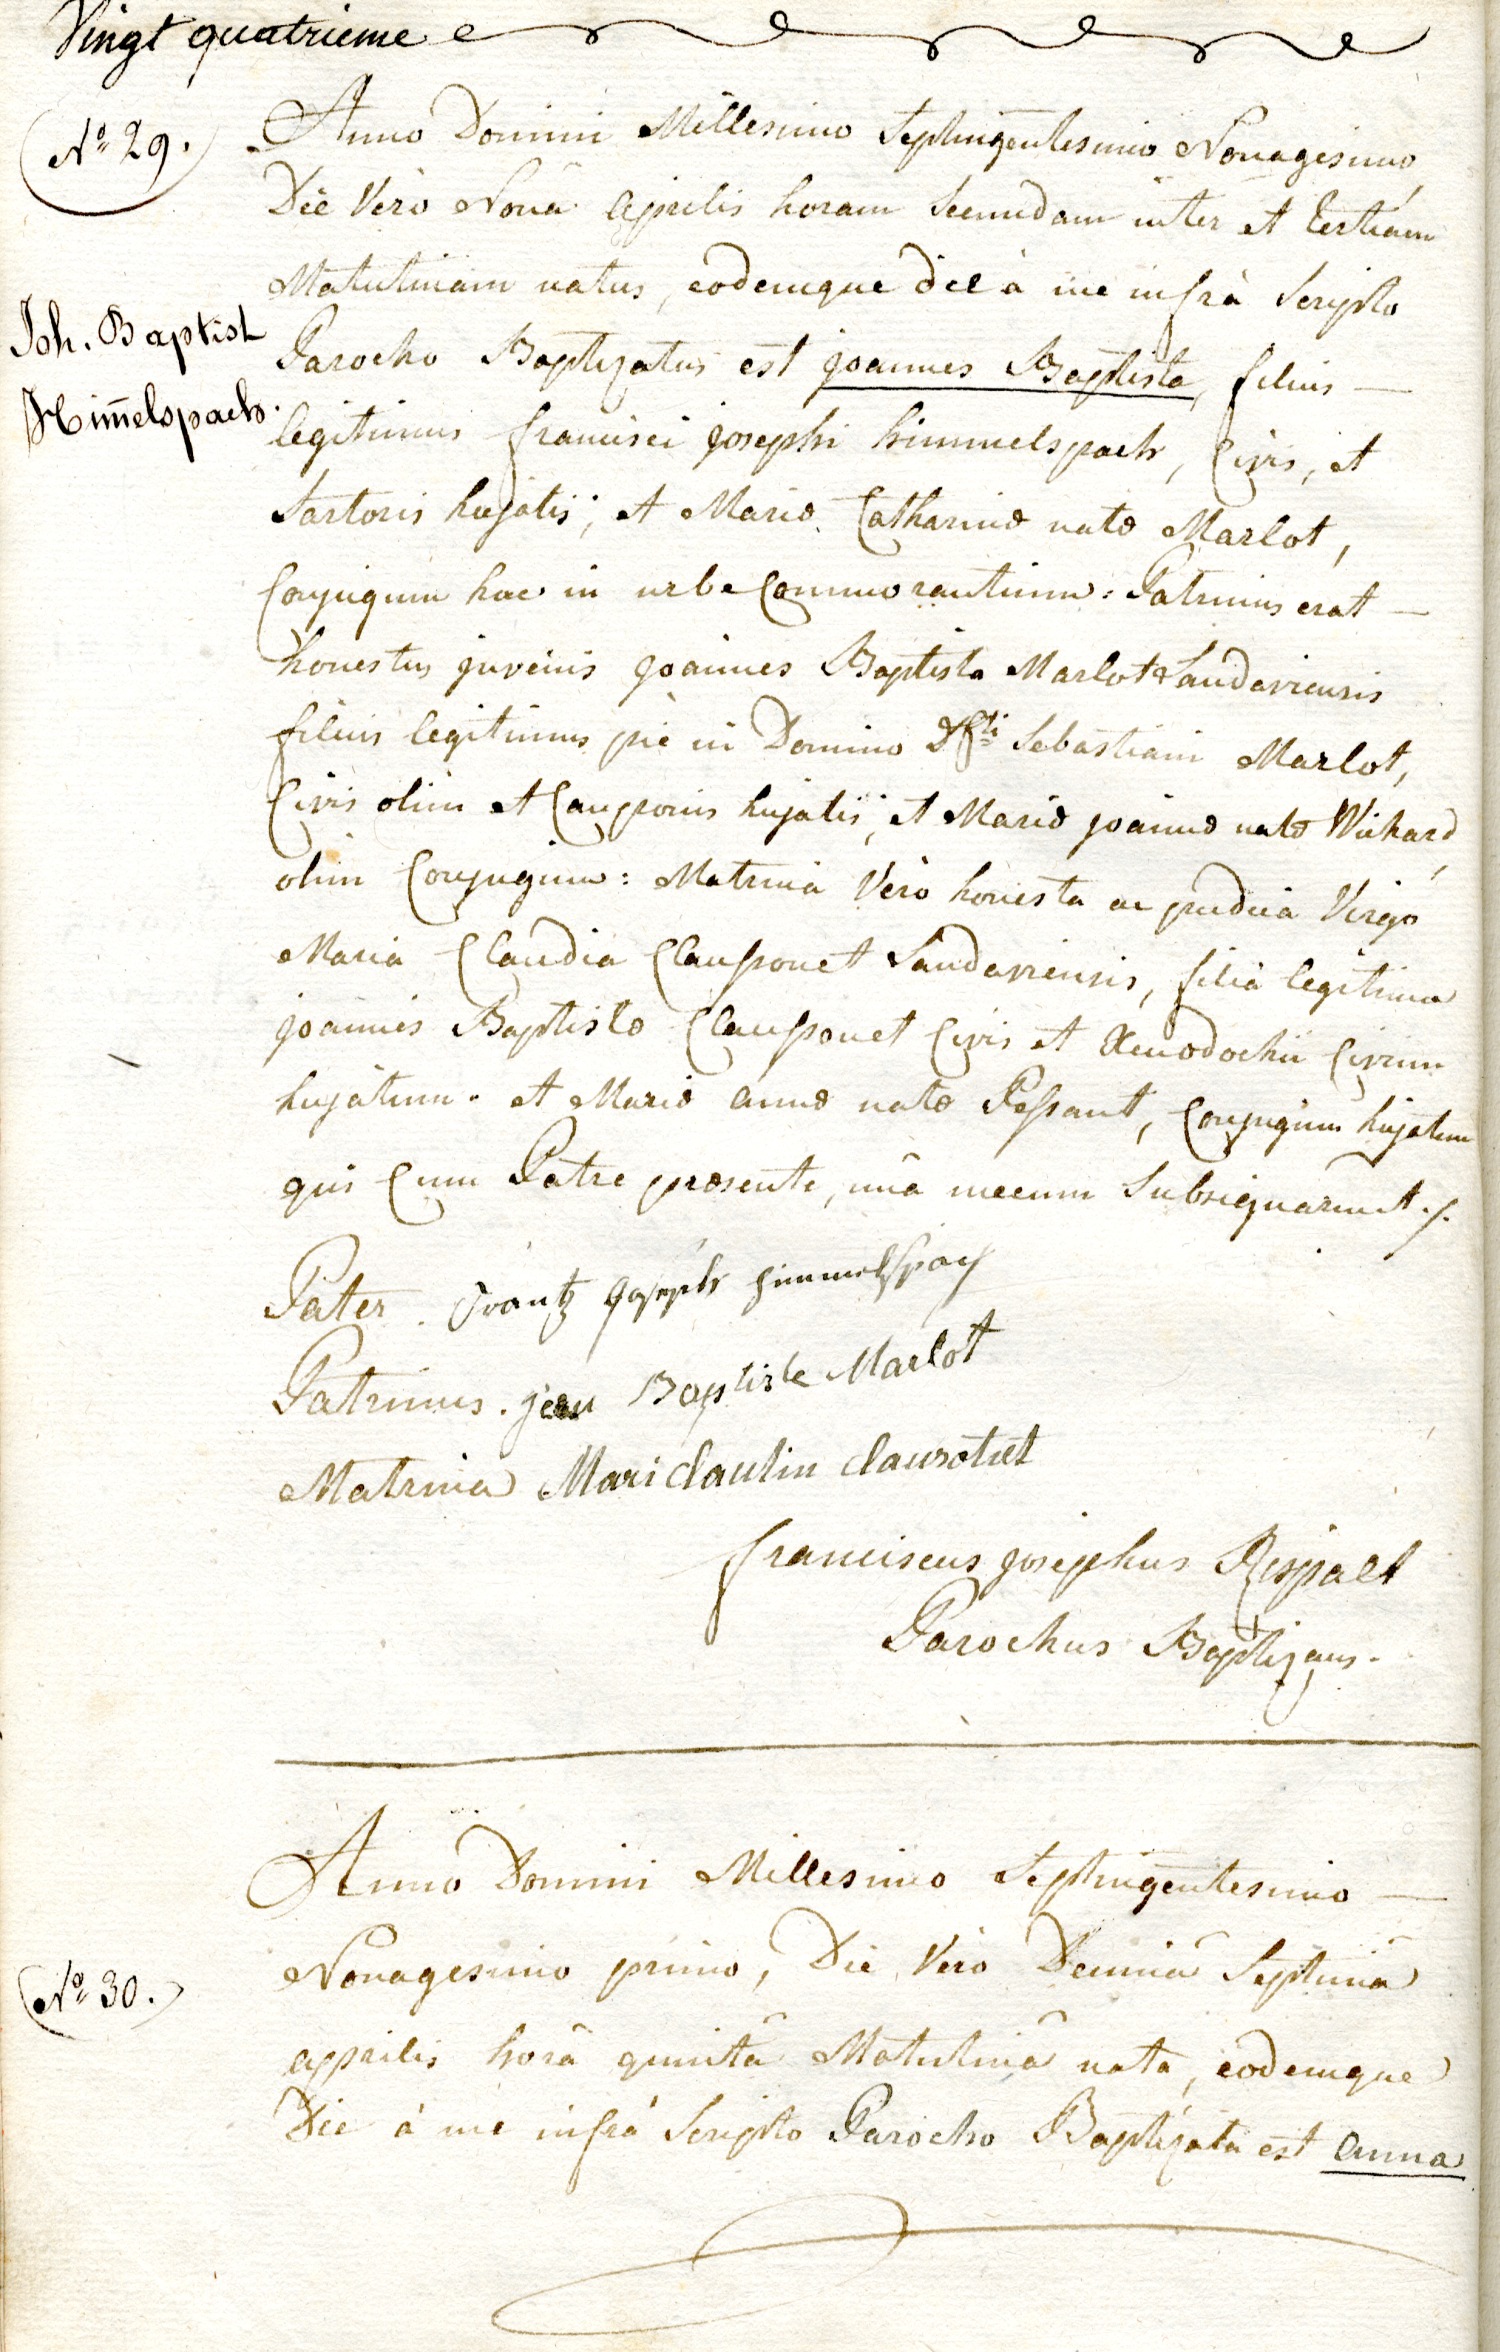 Vingt quatrieme
N.o 29.
Anno Domini Millesimo Septingentesimo Nonagesimo,
Die Verò Nonâ Aprilis horam Secundam inter et tertiam
Matutinam natus, eodemque die à me infrà Scripto
Joh. Baptist
Parocho Baptizatus est joannes Baptista, filius —
Himelspach.
legitimus francisci josephi himmelspach, Civis, et
Sartoris hujatis, et Mariæ Catharinæ natæ Marlot,
Conjugum hac in urbe Commorantium: Patrinus erat —
honestus juvenis joannes Baptista Marlot Landaviensis
filius legitimus piè in Domino Dfti Sebastiani Marlot,
Civis olim et Cauponis hujatis, et Mariæ joannæ natæ
olim Conjugum: Matrina Vero honesta ac pudica Virgo
Maria Claudia Claussonet Landaviensis, filia legitima
joannis Baptistæ Claussonet Civis et Xenodochii Civium
hujatum. et Mariæ annæ natæ Pessant, Conjugum hujatum
qui Cum Patre præsente, unâ mecum Subsignarunt ./.
Pater. Frantz Joseph himmelspach
Patrinus. jean Baptiste Marlot
Matrina Mari Claudin
franciscus josephus Rispalt
Parochus Baptizans.
Anno Domini Millesimo Septingentesimo —
Nonagesimo primo, Die Vero Decimâ Septimâ
N.o 30.
apprilis horâ quintâ Matutinâ nata, eodemque
Die à me infrà Scripto Parocho Baptizata est Anna